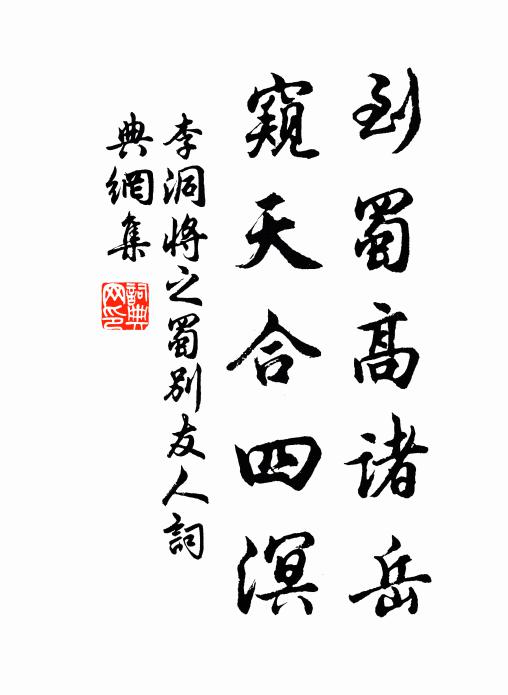 到蜀高諸岳
窺天合四溟
李洞將之蜀別友人詞
典網集
詞典
网印